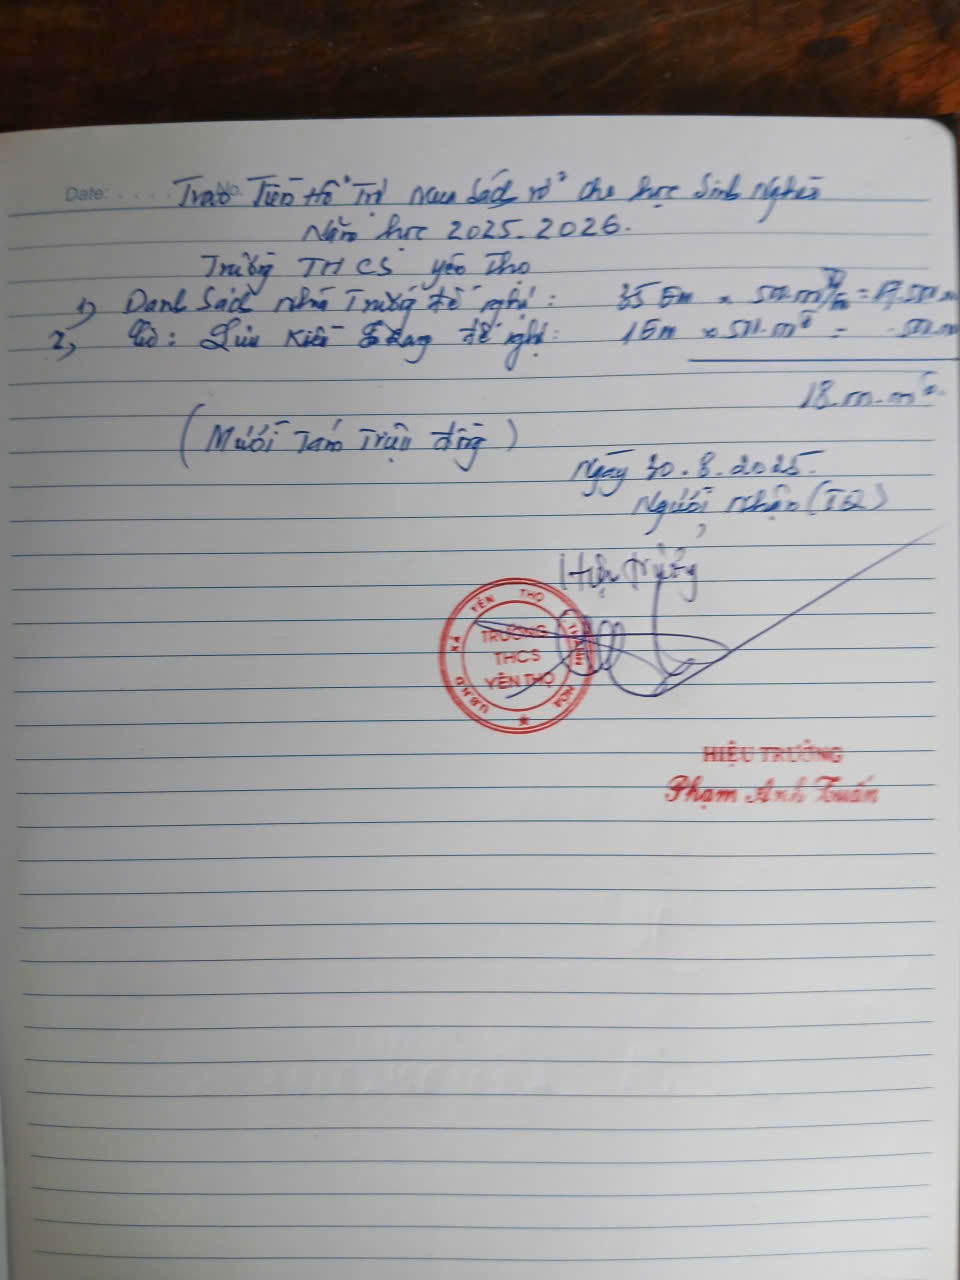 Date: . . . . No.
Trao Tiền Hỗ Trợ mua Sách vở cho học Sinh Nghèo
Năm học 2025-2026.
Trường THCS Yên Thọ
1) Danh Sách nhà Trường đề nghị: 35 Em x 500.000đ/em = 17.500.000
2, Lưu Kiến đề nghị: 1 Em x 500.000đ = 500.000
18.000.000đ
(Mười Tám Triệu đồng)
Ngày 30.8.2025.
Người nhận (TQ)
Hiệu trưởng
U.B.N.D XÃ YÊN THỌ THANH HÓA
TRƯỜNG
THCS
YÊN THỌ
HIỆU TRƯỞNG
Phạm Anh Tuấn